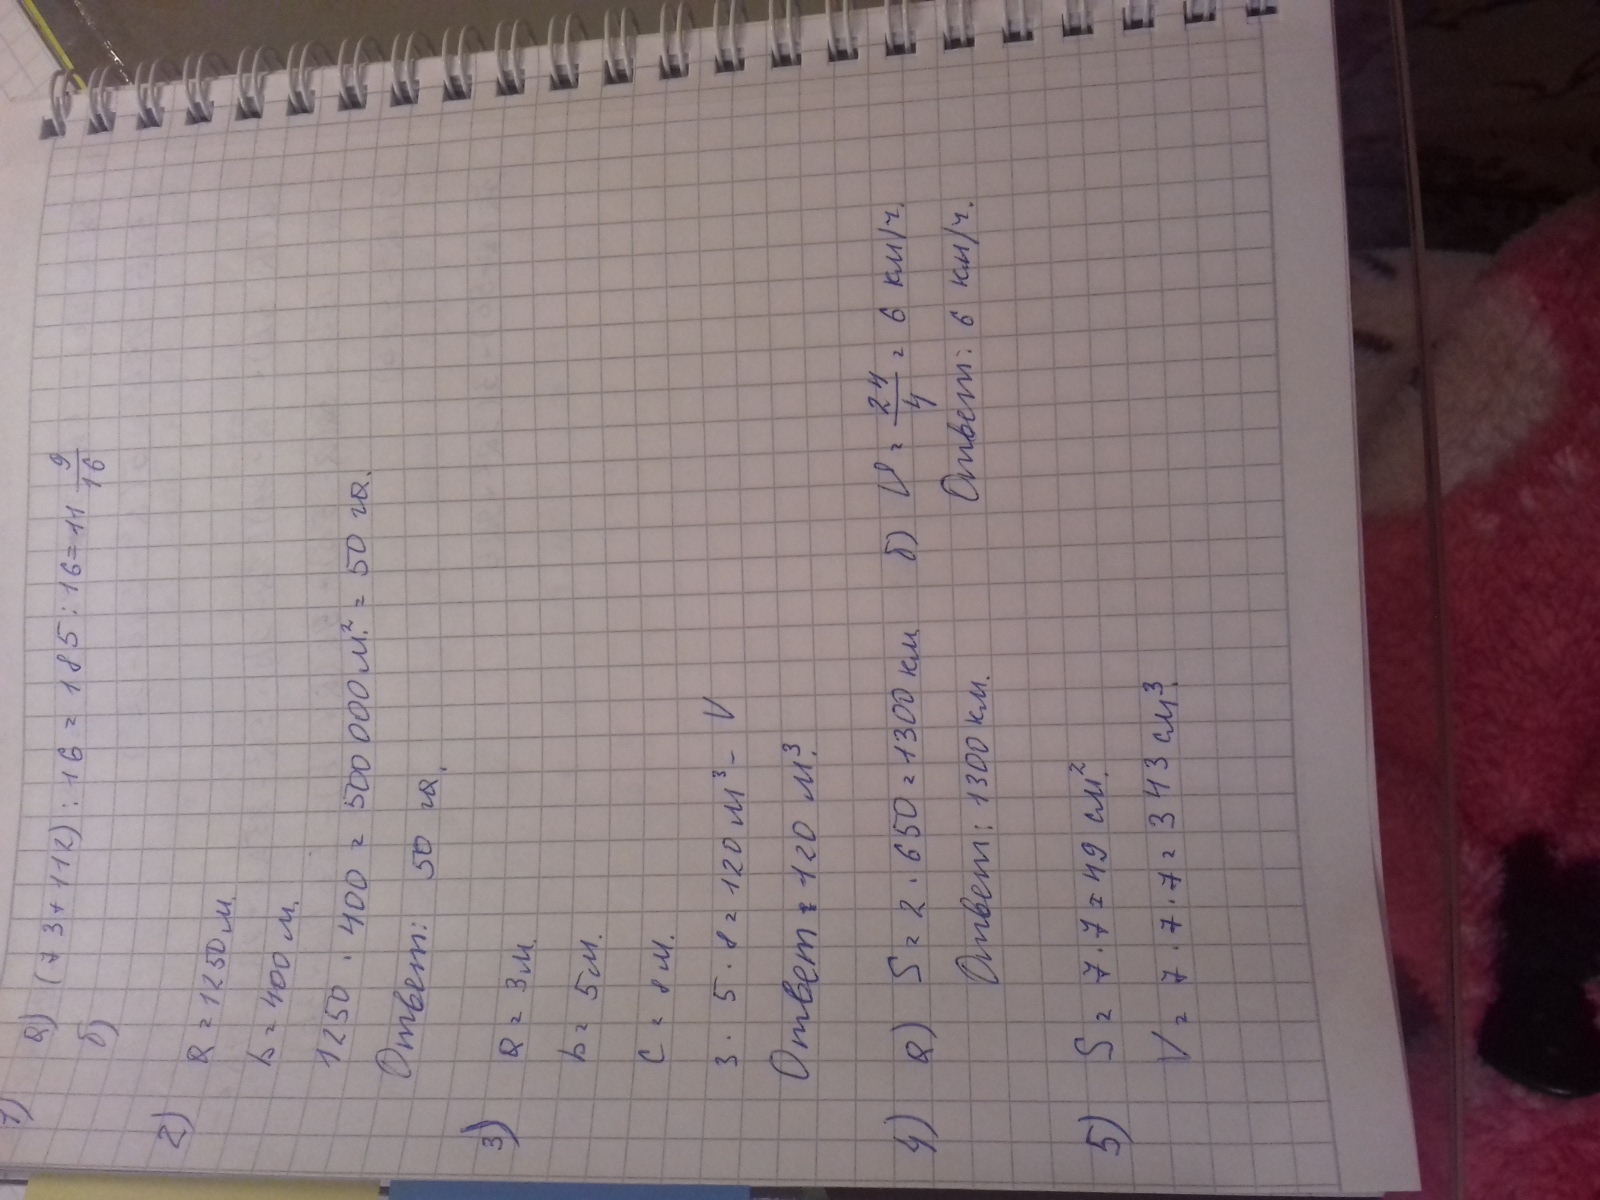 1)
а) (73+112):16=185:16=11 9/16
б)
2)
a=1250м.
b=400м.
1250·400=500000м²=50 га.
Ответ: 50 га.
3)
a=3м.
b=5м.
c=8м.
3·5·8=120м³-V
Ответ: 120 м³.
4) а) S=2·650=1300км б) V=24/4=6 км/ч.
Ответ: 1300км. Ответ: 6 км/ч.
5) S=7·7=49 см².
V=7·7·7=343см³.